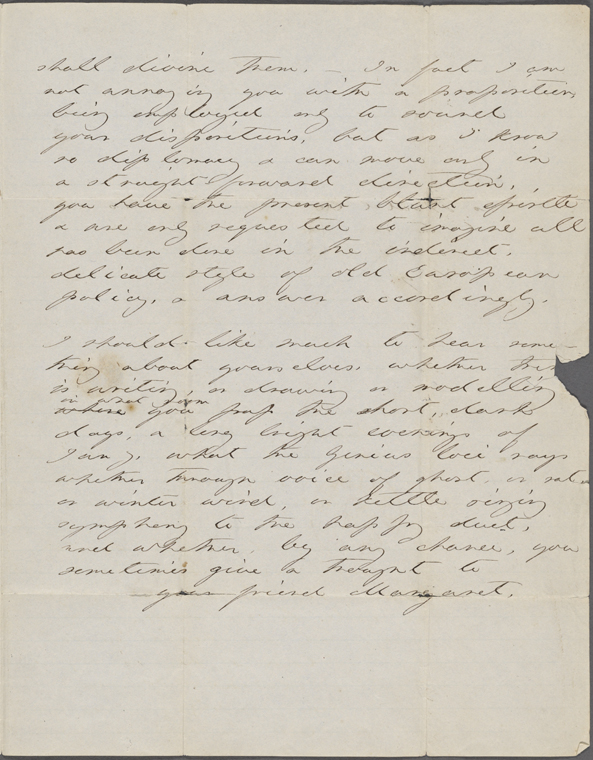 shall divine them. — In fact I am
not annoying you with a proposition,
being employed only to sound
your dispositions, but as I know
no diplomacy & can move only in
a straight-forward direction,
you have the present blunt epistle
& are only requested to imagine all
has been done in the indirect,
delicate style of old European
policy, & answer accordingly.
I should like much to hear some-
thing about yourselves, whether there
is writing, or drawing or modelling
in what room
you pass the short, dark
days, & long bright evenings of
Jany, what the Genius loci says
whether through voice of ghost, or rat
or winter wind, or kettle singing
symphony to the happy duet,
and whether, by any chance, you
sometimes give a thought to
your friend Margaret.